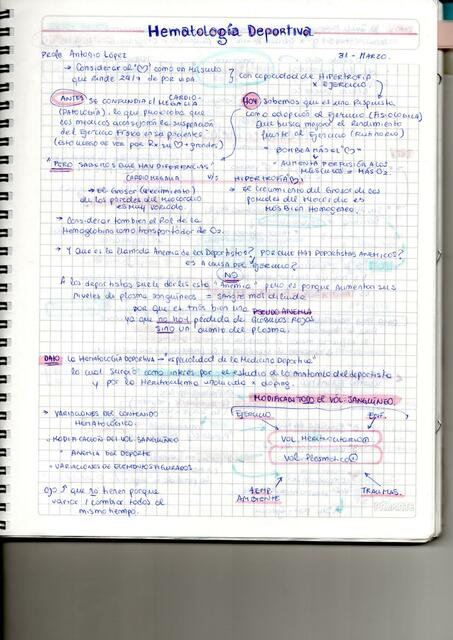 Hematología Deportiva
Profe Antonio López
31 - MARZO.
→ Considerar al "♡" como un Músculo
que rinde 24/7 de por vida
con capacidad de HIPERTROFIA
x EJERCICIO
ANTES se confundía el CARDIO-
MEGALIA
(PATOLOGÍA). lo que provocaba que
los medicos aconsejaran la suspención
del Ejercicio Físico en sus pacientes
HOY sabemos que es una Respuesta
como adapción al Ejercicio (FISIOLÓGICA)
que busca mejorar el rendimiento
frente al Ejercicio (Rutinario)
"BOMBEA MÁS EL ♡"
AUMENTA PERFUSIÓN A LOS
MÚSCULOS = MÁS O2
"PERO SABEMOS QUE HAY DIFERENCIAS"
CARDIOMEGALIA v/s HIPERTROFIA ♡
→ el Grosor (crecimiento)
de las paredes del Miocardio
es muy variado
→ El crecimiento del Grosor de las
paredes del Miocardio es
más bien homogeneo.
→ Considerar tambien el Rol de la
Hemoglobina como transportador de O2.
→ Y que es la llamada Anemia de los Deportistas? POR QUE HAY DEPORTISTAS ANEMICOS?
ES A CAUSA DEL EJERCICIO?
NO
A los deportistas suele darles esta "Anemia" pero es porque aumentan sus
niveles de plasma sanguíneos = sangre más diluida
por que es más bien una PSEUDO ANEMIA
ya que no hay pérdida de Globulos Rojos
sino un aumento del plasma.
DATO La HEMATOLOGÍA DEPORTIVA → "especialidad de la Medicina Deportiva"
lo cual surgió como interés por el estudio de la anatomía del deportista
y por la Hematología vinculada x doping.
MODIFICAN TODO EL VOL SANGUÍNEO.
→ VARIACIONES DEL CONTENIDO
HEMATOLÓGICO.
Ejercicio
• MODIFICACIÓN DEL VOL SANGUÍNEO
VOL.
• ANEMIA DEL DEPORTE
VOL. Plasmático
• VARIACIONES DE ELEMENTOS FIGURADOS
TEMP.
AMBIENTE
TRAUMAS.
OJO que no tienen porque
variar / cambiar todos al
mismo tiempo.